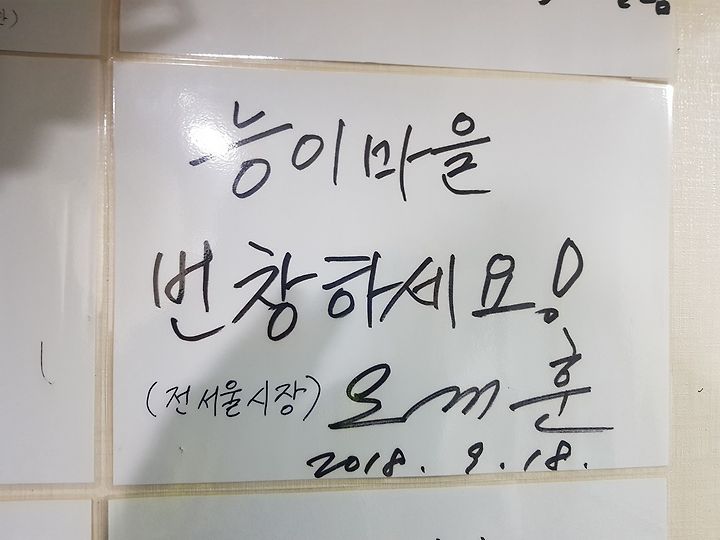 능이마을
번창하세요!
(전 서울시장) 오세훈
2018. 9. 18.